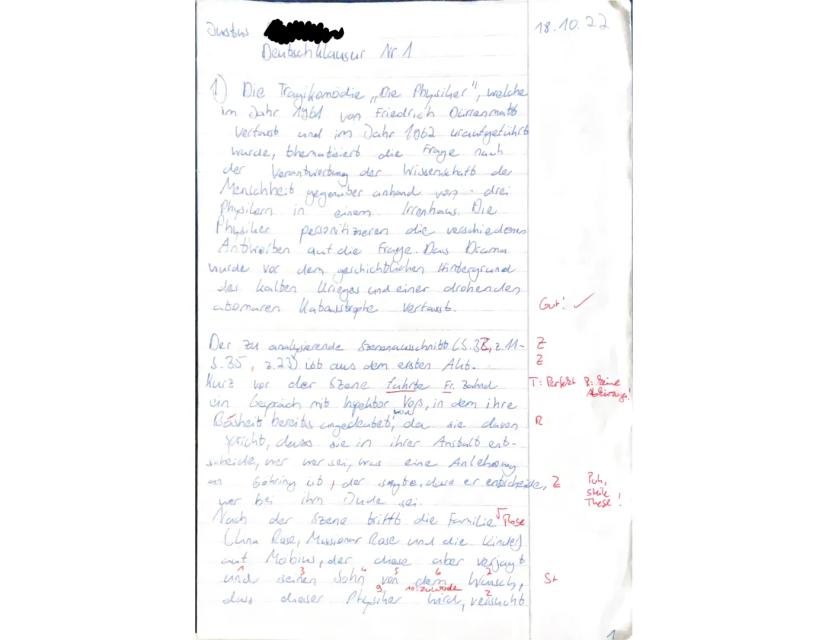 Justus 18.10.22
Deutschklausur Nr 1
1) Die Tragikomödie "Die Physiker", welche
im Jahr 1961 von Friedrich Dürrenmatt
verfasst und im Jahr 1962 uraufgeführt
wurde, thematisiert die Frage nach
der Verantwortung der Wissenschaft der
Menschheit gegenüber anhand von drei
Physikern in einem Irrenhaus. Die
Physiker personifizieren die verschiedenen
Antworten auf die Frage. Das Drama
wurde vor dem geschichtlichen Hintergrund
des kalten Krieges und einer drohenden
atomaren Katastrophe verfasst. Gut! ✓
Der zu analysierende Szenenausschnitt (S. Z. 11- Z
S. 35, Z. 23) ist aus dem ersten Akt. Z
Kurz vor der Szene führte Fr. Zahnd T: Perfekt R: keine
ein Gespräch mit Inspektor Voß, in dem ihre Abkürzungen!
Bosheit bereits angedeutet wird, da sie davon R
spricht, dass sie in ihrer Anstalt ent-
scheide, wer wer sei, was eine Anlehnung
an Göhring ist, der sagte, dass er entscheide, Z Puh,
wer bei ihm Jude sei. steile These!
Nach der Szene trifft die Familie Rose
(Lina Rose, Missionar Rose und die Kinder)
auf Möbius, der diese aber verjagt
und seinen Sohn von dem Wunsch, St
dass dieser Physiker wird, versucht
1